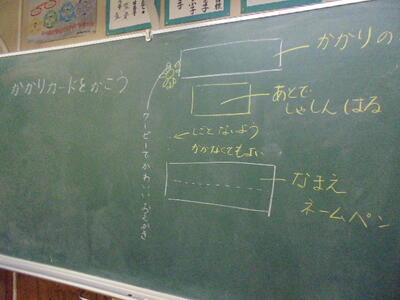 かかりカードをかこう
かかりの
あとで
しゃしんはる
しごとないよう
かかなくてもよい
なまえ
ネームペン
クーピーでかわいいおえかき